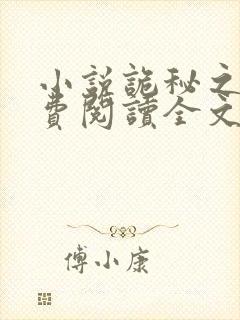 小説詭秘之
費閱讀全文
傅小康